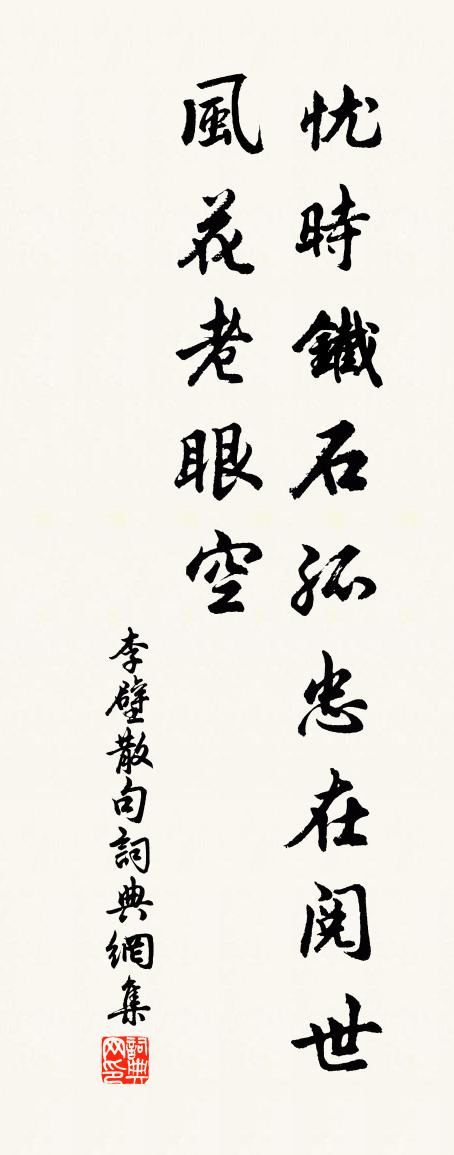 忧時鐵石孤忠在閱世
風花老眼空
李壁散句詞典網集
詞典网印